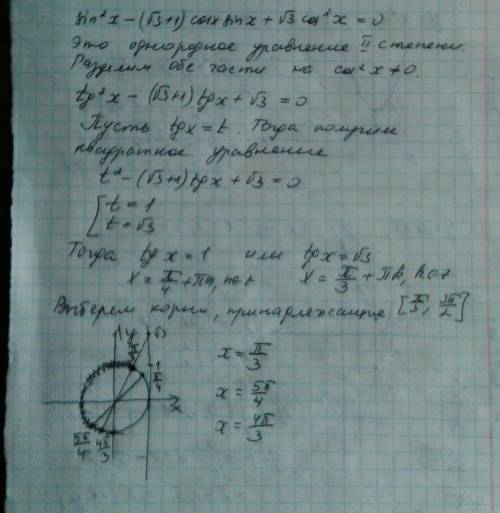 sin²x − (√3+1) cosx sinx + √3 cos²x = 0
Это однородное уравнение II степени.
Разделим обе части на cos²x ≠ 0.
tg²x − (√3+1) tgx + √3 = 0
Пусть tgx = t. Тогда получим
квадратное уравнение
t² − (√3+1) tgx + √3 = 0
[ t = 1
t = √3
Тогда tg x = 1 или tgx = √3
x = π/4 + πn, n∈z x = π/3 + πk, k∈z
Выберем корни, принадлежащие [π/3; 3π/2]
y √3
π/3 1
π/4
x
5π/4 4π/3
x = π/3
x = 5π/4
x = 4π/3